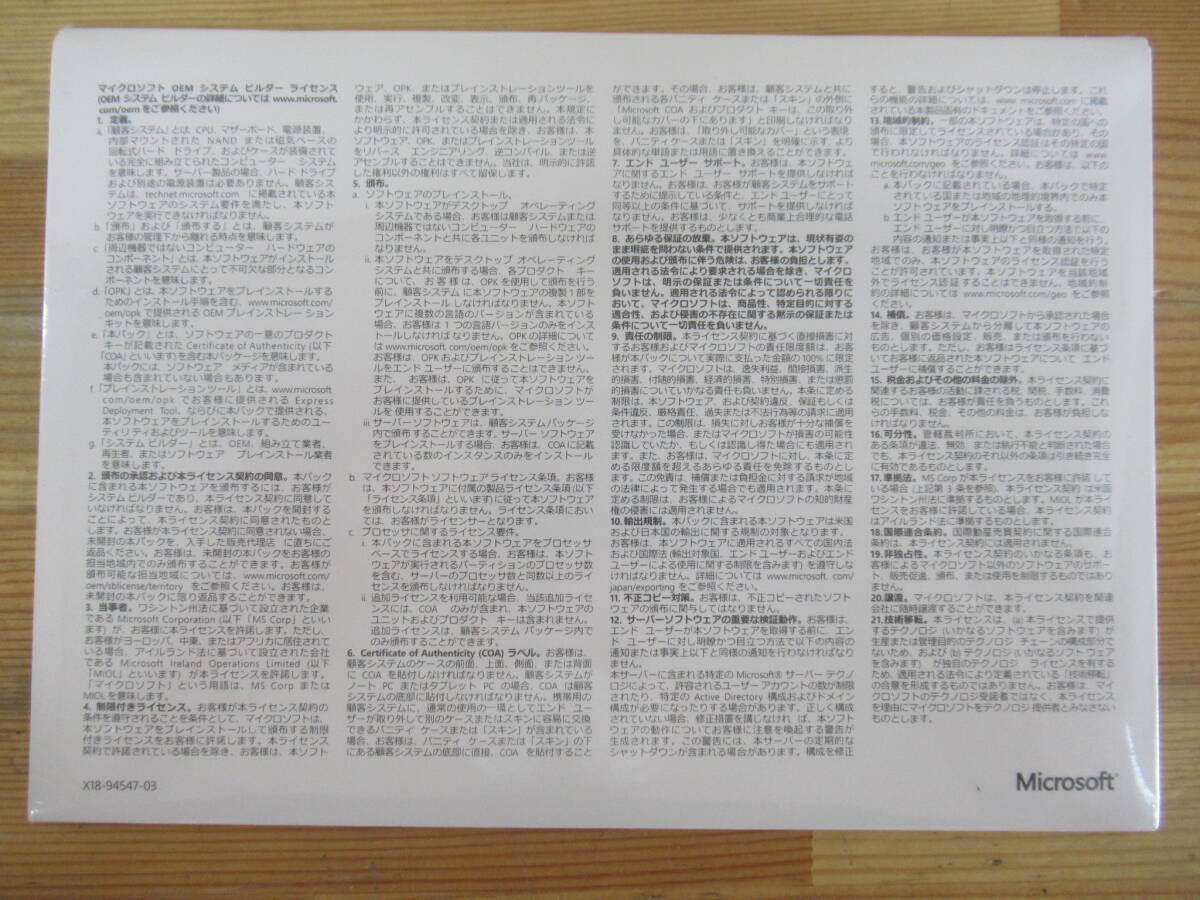 マイクロソフト OEM システム ビルダー ライセンス
(OEM システム ビルダーの詳細については www.microsoft.
com/oem をご参照ください)
1. 定義。
a. 「顧客システム」とは、CPU、マザーボード、電源装置、
内部マウントされた NAND または磁気ベースの
回転式ハード ドライブ、およびケースが装備されて
いる完全に組み立てられたコンピューター システム
を意味します。サーバー製品の場合、ハード ドライブ
および別途の電源装置は必要ありません。顧客シス
テムは、technet.microsoft.com に掲載されている本
ソフトウェアのシステム要件を満たし、本ソフト
ウェアを実行できなければなりません。
b. 「頒布」および「頒布する」とは、顧客システムが
お客様の管理下から離れる時点を意味します。
c. 「周辺機器ではないコンピューター ハードウェアの
コンポーネント」とは、本ソフトウェアがインストール
される顧客システムにとって不可欠な部分となるコン
ポーネントを意味します。
d. 「OPK」とは、本ソフトウェアをプレインストールする
ためのインストール手順を含む、www.microsoft.com/
oem/opk で提供される OEM プレインストレーション
キットを意味します。
e. 「本パック」とは、ソフトウェアの一意のプロダクト
キーが記載された Certificate of Authenticity (以下
「COA」といいます) を含む本パッケージを意味します。
本パックには、ソフトウェア メディアが含まれている
場合も含まれていない場合もあります。
f. 「プレインストレーション ツール」とは、www.microsoft.
com/oem/opk でお客様に提供される Express
Deployment Tool、ならびに本パックで提供される、
本ソフトウェアをプレインストールするためのユー
ティリティおよびツールを意味します。
g. 「システム ビルダー」とは、OEM、組み立て業者、
再生業者、またはソフトウェア プレインストール業者
を意味します。
2. 頒布の承認および本ライセンス契約の同意。本パック
に含まれる本ソフトウェアを頒布するには、お客様が
システム ビルダーであり、本ライセンス契約に同意して
いなければなりません。お客様は、本パックを開封する
ことによって、本ライセンス契約に同意されたものと
します。お客様が本ライセンス契約に同意されない場合、
未開封の本パックを、入手した販売代理店 に直ちにご
返品ください。お客様は、未開封の本パックをお客様の
担当地域内でのみ頒布することができます。お客様が
頒布可能な担当地域については、www.microsoft.com/
oem/sblicense/territory をご参照ください。お客様は、
未開封の本パックのみに限り返品することができます。
3. 当事者。ワシントン州法に基づいて設立された企業
である Microsoft Corporation (以下「MS Corp」といい
ます) が、お客様に本ライセンスを許諾します。ただし、
お客様がヨーロッパ、中東、またはアフリカに居住されて
いる場合、アイルランド法に基づいて設立された会社
である Microsoft Ireland Operations Limited (以下
「MIOL」といいます) が本ライセンスを許諾します。
「マイクロソフト」という用語は、MS Corp または
MIOL を意味します。
4. 制限付きライセンス。お客様が本ライセンス契約の
条件を遵守されることを条件として、マイクロソフトは、
本ソフトウェアをプレインストールして頒布する制限
付きライセンスをお客様に許諾します。本ライセンス
契約で許諾されている場合を除き、お客様は、本ソフト
ウェア、OPK、またはプレインストレーションツールを
使用、実行、複製、改変、表示、頒布、再パッケージ、
または再アセンブルすることはできません。本規定に
かかわらず、本ライセンス契約または適用される法令に
より明示的に許可されている場合を除き、お客様は、本
ソフトウェア、OPK、またはプレインストレーションツール
をリバース エンジニアリング、逆コンパイル、または逆
アセンブルすることはできません。当社は、明示的に許諾
した権利以外の権利はすべて留保します。
5. 頒布。
a. ソフトウェアのプレインストール。
i. 本ソフトウェアがデスクトップ オペレーティング
システムである場合、お客様は顧客システムまたは
周辺機器ではないコンピューター ハードウェアの
コンポーネントと共に各ユニットを頒布しなければ
なりません。
ii. 本ソフトウェアをデスクトップ オペレーティング
システムと共に頒布する場合、各プロダクト キー
について、お客様は、OPK を使用して頒布を行う
前に、顧客システム に本ソフトウェアの複製 1 部を
プレインストールしなければなりません。本ソフト
ウェアに複数の言語のバージョンが含まれている
場合、お客様は 1 つの言語バージョンのみをインス
トールしなければなりません。OPK の詳細について
は www.microsoft.com/oem/opk をご参照ください。
お客様は、OPK およびプレインストレーション ツー
ルをエンド ユーザーに頒布することはできません。
また、お客様は、OPK に従って本ソフトウェアを
プレインストールするために、マイクロソフトが
お客様に提供しているプレインストレーション ツー
ルを使用することができます。
iii. サーバー ソフトウェアは、顧客システムパッケージ
内で頒布することができます。サーバー ソフトウェア
をプレインストールする場合、お客様は、COA に記載
されている数のインスタンスのみをインストール
できます。
b. マイクロソフト ソフトウェア ライセンス条項。お客様は、
本ソフトウェアに付属の製品ライセンス条項 (以下
「ライセンス条項」といいます) に従って本ソフトウェア
を頒布しなければなりません。ライセンス条項におい
ては、お客様がライセンサーとなります。
c. プロセッサに関するライセンス要件。
i. 本パックに含まれる本ソフトウェアをプロセッサ
ベースでライセンスする場合、お客様は、本ソフト
ウェアが実行されるパーティションのプロセッサ数
を含む、サーバーのプロセッサ数と同数以上のライ
センスを頒布しなければなりません。
ii. 追加ライセンスを利用可能な場合、当該追加ライセ
ンスには、COA のみが含まれ、本ソフトウェアの
ユニットおよびプロダクト キーは含まれません。
追加ライセンスは、顧客システム パッケージ内で
のみ頒布することができます。
6. Certificate of Authenticity (COA) ラベル。お客様は、
顧客システムのケースの前面、上面、側面、または背面
に COA を貼付しなければなりません。顧客システムが
ノート PC またはタブレット PC の場合、COA は顧客
システムの底部に貼付しなければなりません。携帯用の
顧客システムに、通常の使用の一環としてエンド ユー
ザーが取り外して別のケースまたはスキンに容易に交換
できるバニティ ケースまたは「スキン」が含まれている
場合、お客様は、バニティ ケースまたは「スキン」の下
にある顧客システムの底部に直接、COA を貼付すること
ができます。その場合、お客様は、顧客システムと共に
頒布される各バニティ ケースまたは「スキン」の外側に
「Microsoft COA およびプロダクト キーは、この取り外
し可能なカバーの下にあります」と印刷しなければなり
ません。お客様は、「取り外し可能なカバー」という表現
を、バニティ ケースまたは「スキン」を明確に示す、より
具体的な単語または用語に置き換えることができます。
7. エンド ユーザー サポート。お客様は、本ソフトウェ
アに関するエンド ユーザー サポートを提供しなければ
なりません。お客様は、お客様が顧客システムをサポート
するために提示している条件と、エンド ユーザーにとって
同等以上の条件に基づいて、サポートを提供しなければ
なりません。お客様は、少なくとも商業上合理的な電話
サポートを提供するものとします。
8. あらゆる保証の放棄。本ソフトウェアは、現状有姿の
まま瑕疵を問わない条件で提供されます。本ソフトウェア
の使用および頒布に伴う危険は、お客様の負担とします。
適用される法令により要求される場合を除き、マイクロ
ソフトは、明示の保証または条件について一切責任を
負いません。適用される法令によって認められる限りに
おいて、マイクロソフトは、商品性、特定目的に対する
適合性、および侵害の不存在に関する黙示の保証または
条件について一切責任を負いません。
9. 責任の制限。本ライセンス契約に基づく直接損害に対
するお客様およびマイクロソフトの責任限度額は、お客
様が本パックについて実際に支払った金額の 100% に限定
されます。マイクロソフトは、逸失利益、間接損害、派生
的損害、付随的損害、経済的損害、特別損害、または懲罰
的損害についていかなる責任も負いません。本条に定める
制限は、本ソフトウェア、および契約違反、保証もしくは
条件違反、厳格責任、過失または不法行為等の請求に適用
されます。この制限は、損失に対しお客様が十分な補償を
受けなかった場合、またはマイクロソフトが損害の可能性
を認識していたか、もしくは認識し得た場合にも適用され
ます。また、お客様は、マイクロソフトに対し、本条に定
める限度額を超えるあらゆる責任を免除するものとし
ます。この免責は、補償または負担金に対する請求が地域
の法律によって発生する場合でも適用されます。本条に
定める制限は、お客様によるマイクロソフトの知的財産
権の侵害には適用されません。
10. 輸出規制。本パックに含まれる本ソフトウェアは米国
および日本国の輸出に関する規制の対象となります。
お客様は、本ソフトウェアに適用されるすべての国内法
および国際法 (輸出対象国、エンド ユーザーおよびエンド
ユーザーによる使用に関する制限を含みます) を遵守しな
ければなりません。詳細については www.microsoft.com/
japan/exporting をご参照ください。
11. 不正コピー対策。お客様は、不正コピーされたソフト
ウェアの頒布に関与してはなりません。
12. サーバーソフトウェアの重要な検証動作。お客様は、
エンド ユーザーが本ソフトウェアを取得する前に、エン
ド ユーザーに対し明瞭かつ目立つ方法で以下の内容の
通知または事実上以下と同様の通知を行わなければなり
ません。
本サーバーに含まれる特定の Microsoft® サーバー テクノ
ロジによって、許容されるユーザー アカウントの数が制限
されたり、特定の Active Directory 構成および検証
構成が必要になったりする場合があります。正しく構成
されていない場合、修正措置を講じなければ、本ソフト
ウェアの動作についてお客様に注意を喚起する警告が
生成されます。この警告には、本サーバーの定期的な
シャットダウンが含まれる場合があります。構成を修正
すると、警告およびシャットダウンは停止します。これ
らの機能の詳細については、www.microsoft.com に掲載
されている製品固有のドキュメントをご参照ください。
13. 地域的制約。一部の本ソフトウェアは、特定の国への
頒布に限定してライセンスされている場合があり、その
場合、本ソフトウェアのライセンス認証はその特定の国
でしか行われない場合があります。詳細については www.
microsoft.com/geo をご参照ください。お客様は、以下の
ことを行わなければなりません。
a. 本パックに記載されている場合、本パックで特定
されている国または地域の地理的境界内でのみ本
ソフトウェアをプレインストールする。
b. エンド ユーザーが本ソフトウェアを取得する前に、
エンド ユーザーに対し明瞭かつ目立つ方法で以下の
内容の通知または事実上以下と同様の通知を行う。
お客様は、お客様が本ソフトウェアを取得された特定
地域でのみ、本ソフトウェアのライセンス認証を行う
ことが許可されています。本ソフトウェアを当該地域
外でライセンス認証することはできません。地域的制
約の詳細については www.microsoft.com/geo をご参照
ください。
14. 補償。お客様は、マイクロソフトから承認された場合
を除き、顧客システムから分離して本ソフトウェアの
広告、個別の価格設定、販売、または頒布を行わない
ものとします。ただし、お客様はライセンス条項に基づ
いてお客様に返品された本ソフトウェアについて、エンド
ユーザーに補償することができます。
15. 税金およびその他の料金の除外。本ライセンス契約に
関連するお客様の活動に課される税、関税、手数料、消費
税については、お客様が保証責任を負うものとします。これ
らの手数料、税金、その他の料金は、お客様が負担しな
ければなりません。
16. 可分性。管轄裁判所において、本ライセンス契約の
ある条項が違法、無効、または執行不能と判断された場合
でも、本ライセンスのそれ以外の条項は引き続き完全
に有効であるものとします。
17. 準拠法。MS Corp が本ライセンスをお客様に許諾して
いる場合 (上記第 3 条を参照)、本ライセンス契約は米国
ワシントン州法に準拠するものとします。MIOL が本ライ
センスをお客様に許諾している場合、本ライセンス契約
はアイルランド法に準拠するものとします。
18. 国際連合条約。国際動産売買契約に関する国際連合
条約は、本ライセンス 契約には適用されません。
19. 非独占性。本ライセンス契約のいかなる条項も、お
客様によるマイクロソフト以外のソフトウェアのサポー
ト、販売促進、頒布、または使用を制限するものではあり
ません。
20. 譲渡。マイクロソフトは、本ライセンス契約を関連
会社に随時譲渡することができます。
21. 技術移転。本ライセンスは、(a) 本ライセンスで提供
するテクノロジ (いかなるソフトウェアを含みます) が
生産または管理目的のテクノロジ チェーンの構成部分で
ないため、および (b) テクノロジ (いかなるソフトウェア
を含みます) が独自のテクノロジ ライセンスを有する
ため、適用される法令により定義されている「技術移転」
の合意を形成するものではありません。お客様は、マイ
クロソフトのテクノロジ受諾者ではなく、本ライセンス
を理由にマイクロソフトをテクノロジ 提供者とみなさない
ものとします。
X18-94547-03
Microsoft